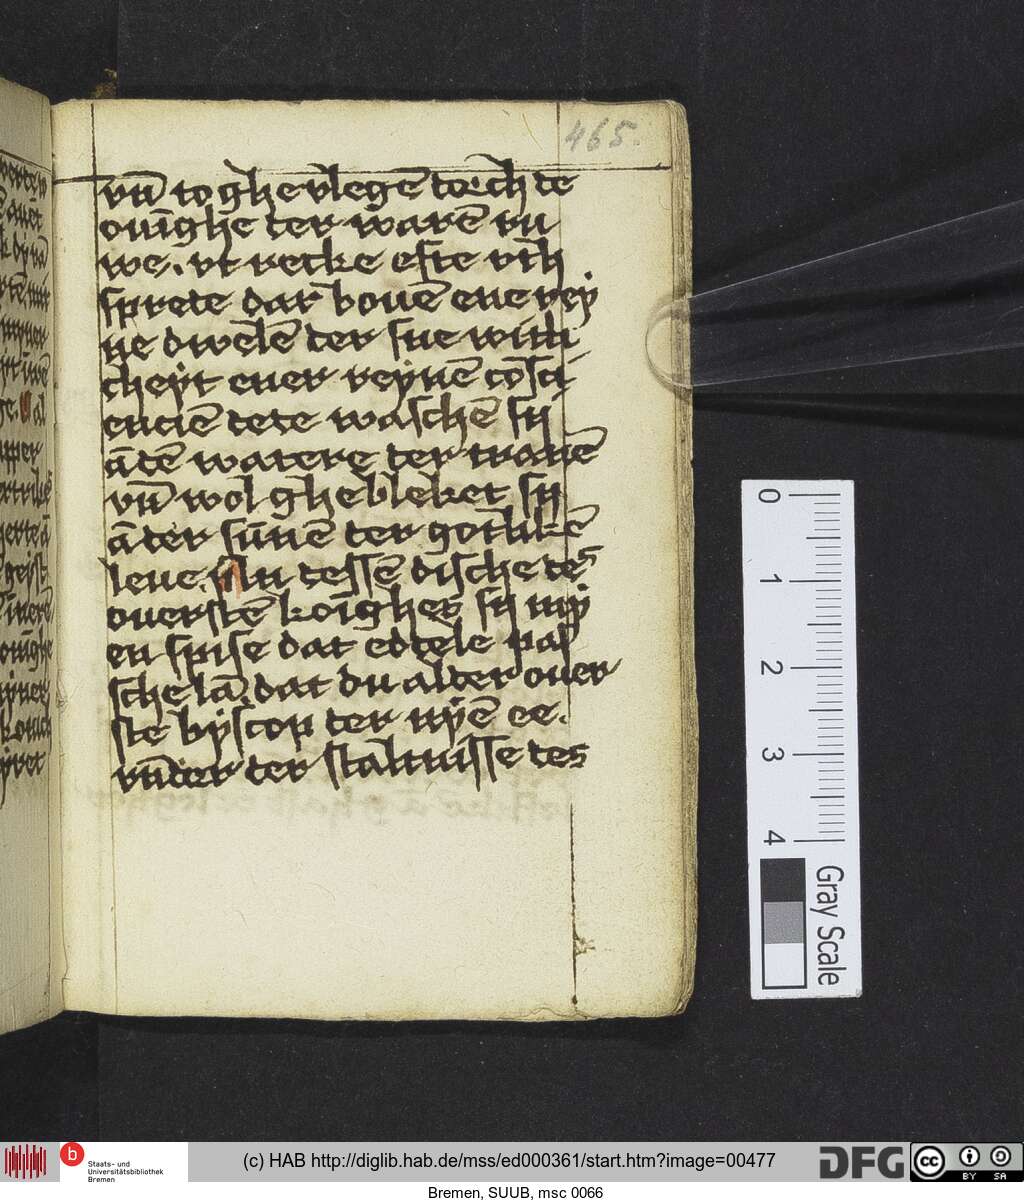 465.
vn̄ to ghevlegē dorch de
ovīghe der warē ru
we. vt recke efte vth
sprete dar bouē ene rey
ne dwelē der sue witti
cheyt ener reynē cōsci
encien dede waschē sij
ā dē watere der tranē
vn̄ wol ghebleket sij
ā der sūnē der gotlikē
leue. In dessē dische des
ouerstē koīghes sij my
en spise dat eddele pas
sche lā. dat du alder ouer
ste byscop der nyē ee.
vnder der staltnisse des
0
1
2
3
4
Gray Scale
b
Staats- und
Universitätsbibliothek
Bremen
(c) HAB http://diglib.hab.de/mss/ed000361/start.htm?image=00477
DFG
cc
BY SA
Bremen, SUUB, msc 0066